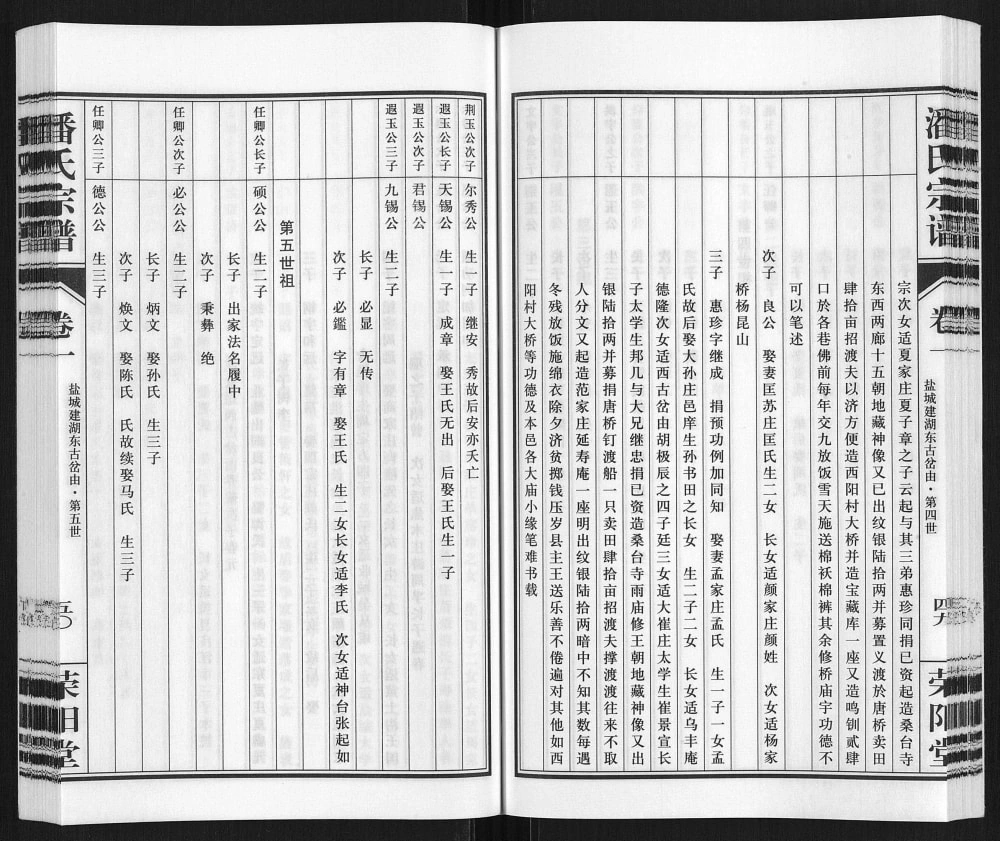 潘氏宗谱
卷一
盐城建湖东古岔由·第四世
四九
荣阳堂
宗次女适夏家庄夏子章之子云起与其三弟惠珍同捐已资起造桑台寺
东西两廊十五朝地藏神像又已出纹银陆拾两并募置义渡於唐桥卖田
肆拾亩招渡夫以济方便造西阳村大桥并造宝藏库一座又造鸣钏贰肆
口於各巷佛前每年交九放饭雪天施送棉袄棉裤其余修桥庙宇功德不
可以笔述
次子 良公 娶妻匡苏庄匡氏生二女 长女适颜家庄颜姓 次女适杨家
桥杨昆山
三子 惠珍字继成 捐预功例加同知 娶妻孟家庄孟氏 生一子一女孟
氏故后娶大孙庄邑庠生孙书田之长女 生二子二女 长女适乌丰庵
德隆次女适西古岔由胡极辰之四子廷三女适大崔庄太学生崔景宣长
子太学生邦几与大兄继忠捐已资造桑台寺雨庙修王朝地藏神像又出
银陆拾两并募捐唐桥钉渡船一只卖田肆拾亩招渡夫撑渡渡往来不取
人分文又起造范家庄延寿庵一座明出纹银陆拾两暗中不知其数每遇
冬残放饭施绵衣除夕济贫掷钱压岁县主王送乐善不倦遍对其他如西
阳村大桥等功德及本邑各大庙小缘笔难书载
荆玉公次子 尔秀公 生一子 继安 秀故后安亦夭亡
遐玉公长子 天锡公 生一子 成章 娶王氏无出 后娶王氏生一子
遐玉公次子 君锡公
遐玉公三子 九锡公 生二子
长子 必显 无传
次子 必鑑 字有章 娶王氏 生二女长女适李氏 次女适神台张起如
第五世祖
任卿公长子 硕公公 生二子
长子 出家法名履中
次子 秉彝 绝
任卿公次子 必公公 生二子
长子 炳文 娶孙氏 生三子
次子 焕文 娶陈氏 氏故续娶马氏 生三子
任卿公三子 德公公 生三子
潘氏宗谱
卷一
盐城建湖东古岔由·第五世
五〇
荣阳堂